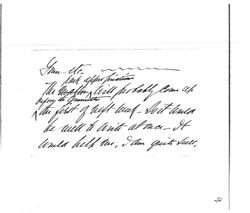 park appropriation
The will, probably come up
before the Committee
the first of next week – So it would
be well to write at once – It
would help me, I am quite sure.